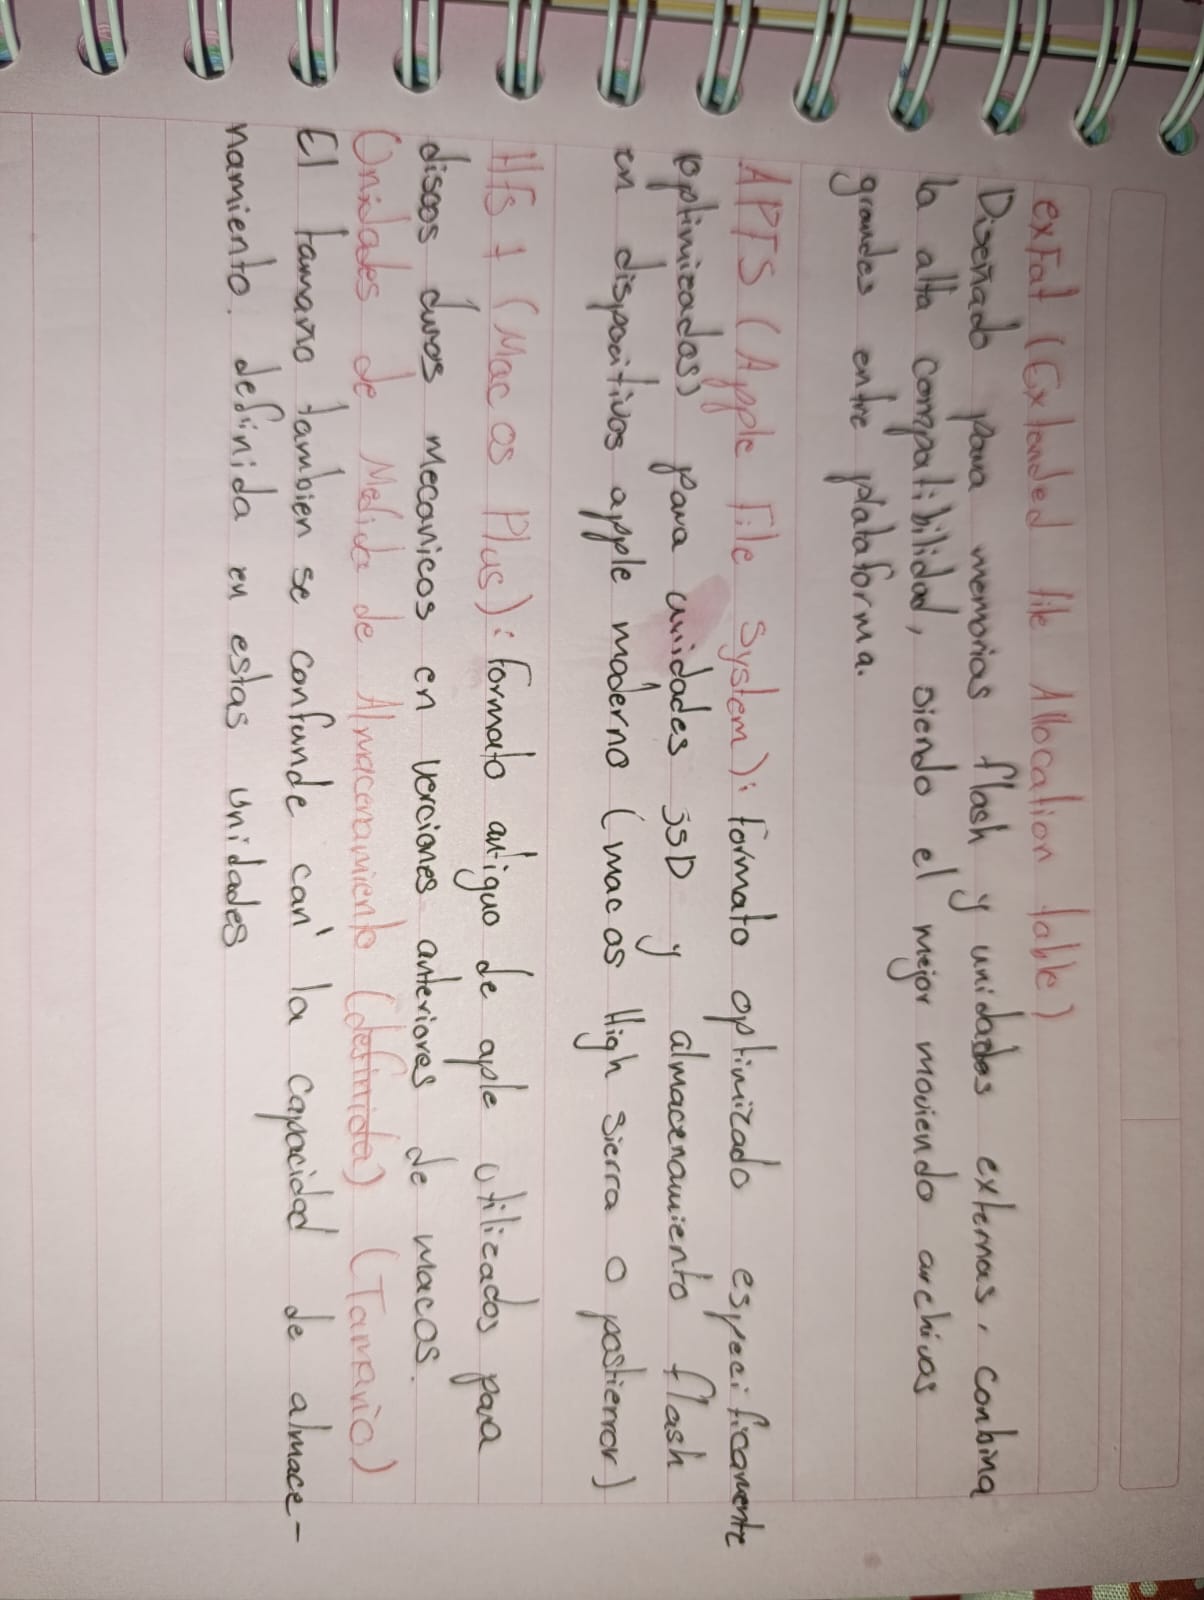 exFat (Extended file Allocation table)
Diseñado para memorias flash y unidades externas, conbina
la alta compatibilidad, siendo el mejor moviendo archivos
grandes entre plataforma.
APFS (Apple file system): formato optimizado especificamente
optimizadas) para unidades SSD y almacenamiento flash
en dispocitivos apple moderno (mac os High sierra o postierror)
Hfs + (Mac os Plus): formato antiguo de aple utilizados para
discos duros mecanicos en verciones anteriores de macos.
Unidades de Medida de Almacenamiento (definida) (Tamaño)
El tamaño tambien se confunde con la capacidad de almace-
namiento. definida en estas unidades